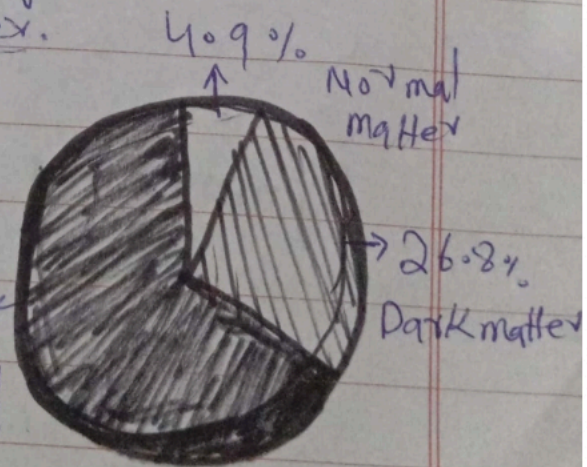 4.9%
Normal
matter
26.8%
Dark matter